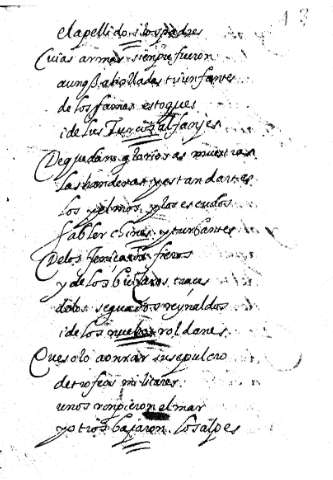 el apellido i los padres
Cuias armas siempre fueron
aunq̃ abolladas triunfantes
de los fames estoques
i de los Turcos alfanjes
De q̃ quedan gloriosas muestras
las banderas y estandartes
los yelmos y los escudos
tablechinas y turbantes
De los fenicados frenos
y de los bizarros traces
delos segundos reynaldos
i de los nuebos roldanes
Que solo a onrar su sepulcro
de trofeos militares
unos ronpieron el mar
y otros bajaron los alpes